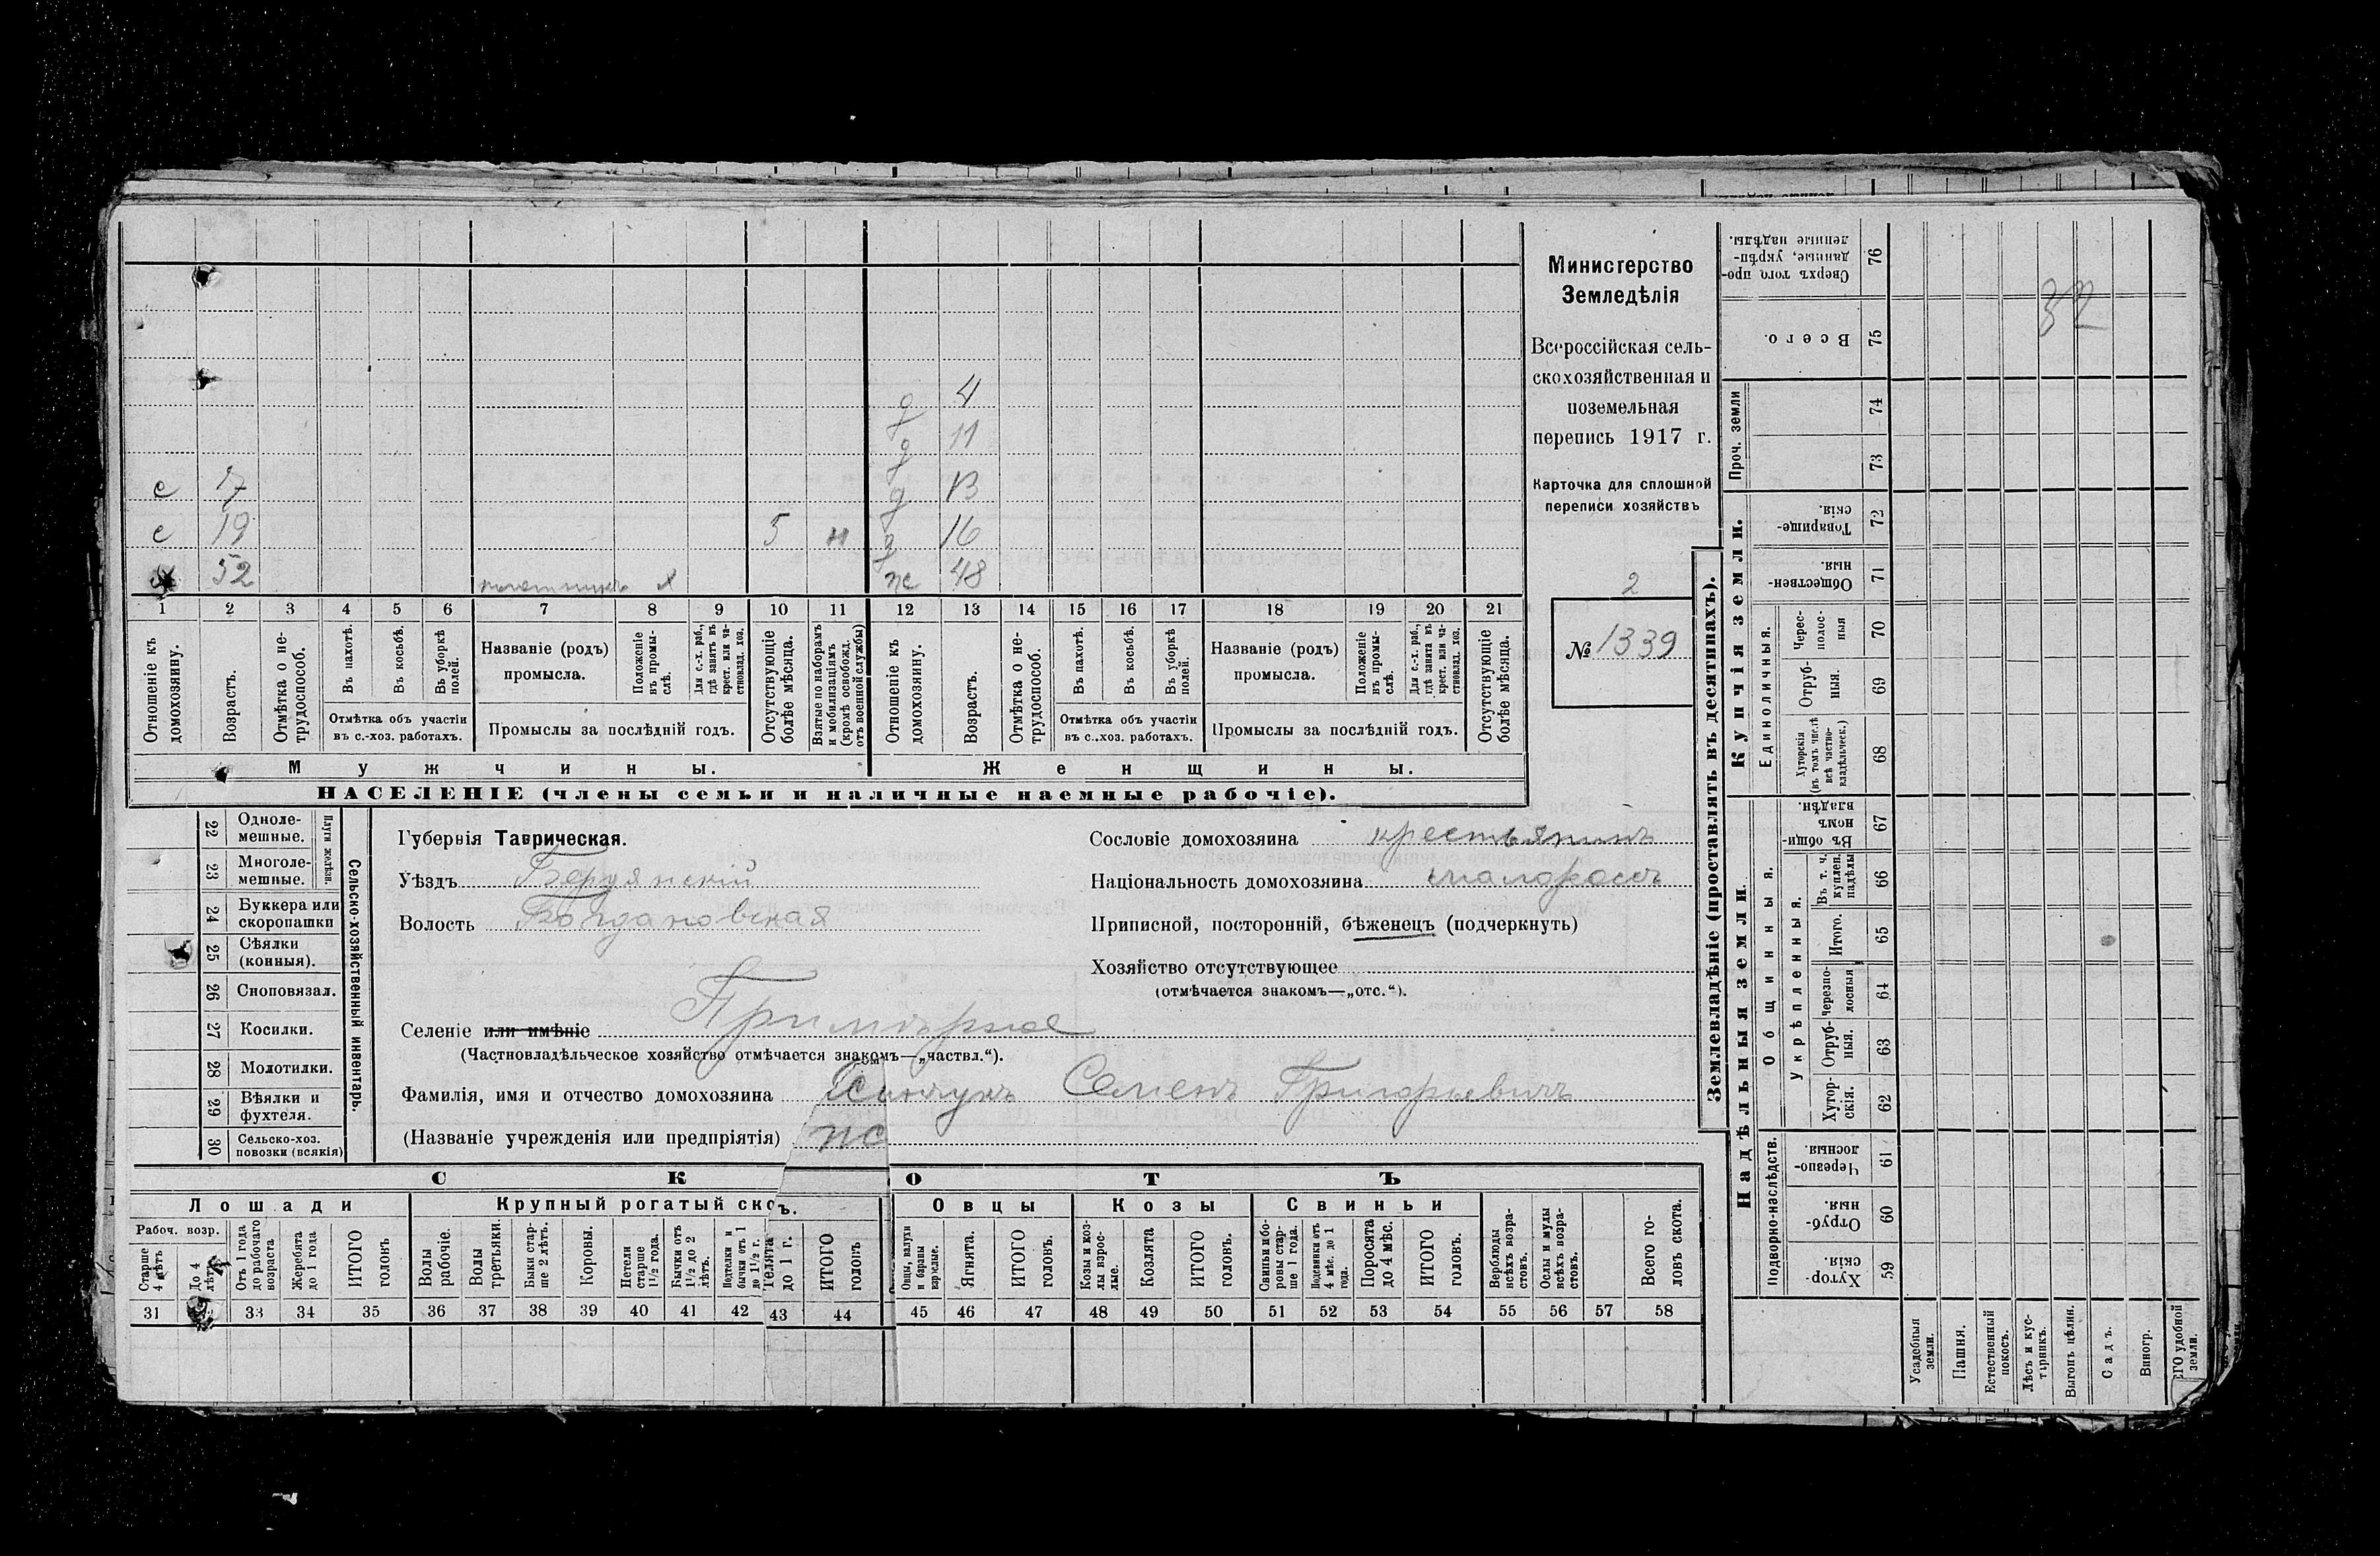 Министерство
Земледѣлія
Всероссійская сель-
скохозяйственная и
поземельная
перепись 1917 г.
Карточка для сплошной
переписи хозяйствъ
2
№ 1339
д 4
д 11
с 17 д 13
с 19 5 н д 16
52 ж 48
1 2 3 4 5 6 7 8 9 10 11 12 13 14 15 16 17 18 19 20 21
Отношеніе къ домохозяину.
Возрастъ.
Отмѣтка о не-трудоспособ.
Въ пахотѣ.
Въ косьбѣ.
Въ уборкѣ полей.
Отмѣтка объ участіи
въ с.-хоз. работахъ.
Названіе (родъ)
промысла.
Положеніе въ промы-слѣ.
Для с.-х. раб., гдѣ занятъ въ крест. или ча-стновлад. хоз.
Промыслы за послѣдній годъ.
Отсутствующіе болѣе мѣсяца.
Взятые по наборамъ и мобилизаціямъ (кромѣ освобожд. отъ военной службы)
Отношеніе къ домохозяину.
Возрастъ.
Отмѣтка о не-трудоспособ.
Въ пахотѣ.
Въ косьбѣ.
Въ уборкѣ полей.
Отмѣтка объ участіи
въ с.-хоз. работахъ.
Названіе (родъ)
промысла.
Положеніе въ промы-слѣ.
Для с.-х. раб., гдѣ занята въ крест. или ча-стновлад. хоз.
Промыслы за послѣдній годъ.
Отсутствующіе болѣе мѣсяца.
Мужчины. Женщины.
НАСЕЛЕНІЕ (члены семьи и наличные наемные рабочіе).
22 Одноле-мешные.
23 Многоле-мешные.
Плуги желѣзн.
24 Буккера или скоропашки
25 Сѣялки (конныя).
26 Сноповязал.
27 Косилки.
28 Молотилки.
29 Вѣялки и фухтеля.
30 Сельско-хоз. повозки (всякія)
Сельско-хозяйственный инвентарь.
Губернія Таврическая.
Уѣздъ Бердянскій
Волость Богдановская
Сословіе домохозяина крестьянинъ
Національность домохозяина малороссъ
Приписной, посторонній, бѣженецъ (подчеркнуть)
Хозяйство отсутствующее
(отмѣчается знакомъ—„отс.“).
Селеніе или имѣніе
(Частновладѣльческое хозяйство отмѣчается знакомъ—„частвл.“).
Фамилія, имя и отчество домохозяина Семенъ Григорьевичъ
(Названіе учрежденія или предпріятія)
СКОТЪ
Лошади
Рабоч. возр.
Старше 4 лѣтъ
До 4 лѣтъ
Отъ 1 года до рабочаго возраста
Жеребята до 1 года
ИТОГО головъ
Крупный рогатый ско ъ.
Волы рабочіе.
Волы третьяки.
Быки стар-ше 2 лѣтъ.
Коровы.
Нетели старше 1½ года.
Бычки отъ 1½ до 2 лѣтъ.
Подтелки и бычки отъ 1 до 1½ г.
Телята до 1 г.
ИТОГО головъ
Овцы
Овцы, валухи и бараны взрослые.
Ягнята.
ИТОГО головъ.
Козы
Козы и коз-лы взрос-лые.
Козлята
ИТОГО головъ.
Свиньи
Свиньи и бо-ровы стар-ше 1 года.
Подсвинки отъ 4 мѣс. до 1 года.
Поросята до 4 мѣс.
ИТОГО головъ.
Верблюды всѣхъ возра-стовъ.
Ослы и мулы всѣхъ возра-стовъ.
Всего го-ловъ скота.
31 33 34 35 36 37 38 39 40 41 42 43 44 45 46 47 48 49 50 51 52 53 54 55 56 57 58
Землевладѣніе (проставлять въ десятинахъ).
Купчія земли.
Надѣльныя земли.
76 Сверхъ того про-данные, укрѣп-ленные надѣлы.
75 Всего.
Проч. земли
74
73
72 Товарище-скія.
71 Обществен-ныя.
Единоличныя.
70 Черес-полос-ныя
69 Отруб-ныя.
68 Хуторскія (въ томъ числѣ всѣ частно-владѣльческ.)
Общинныя.
67 Въ общи-номъ владѣн.
Укрѣпленныя.
66 Въ т. ч. куплен. надѣлы
65 Итого.
64 Черезпо-лосныя
63 Отруб-ныя.
62 Хутор-скія.
Подворно-наслѣдств.
61 Черезпо-лосныя.
60 Отруб-ныя.
59 Хутор-скія.
Усадебныя земли.
Пашня.
Естественный покосъ.
Лѣсъ и кус-тарникъ.
Выгонъ цѣлин.
Садъ.
Виногр.
ЕГО удобной земли.